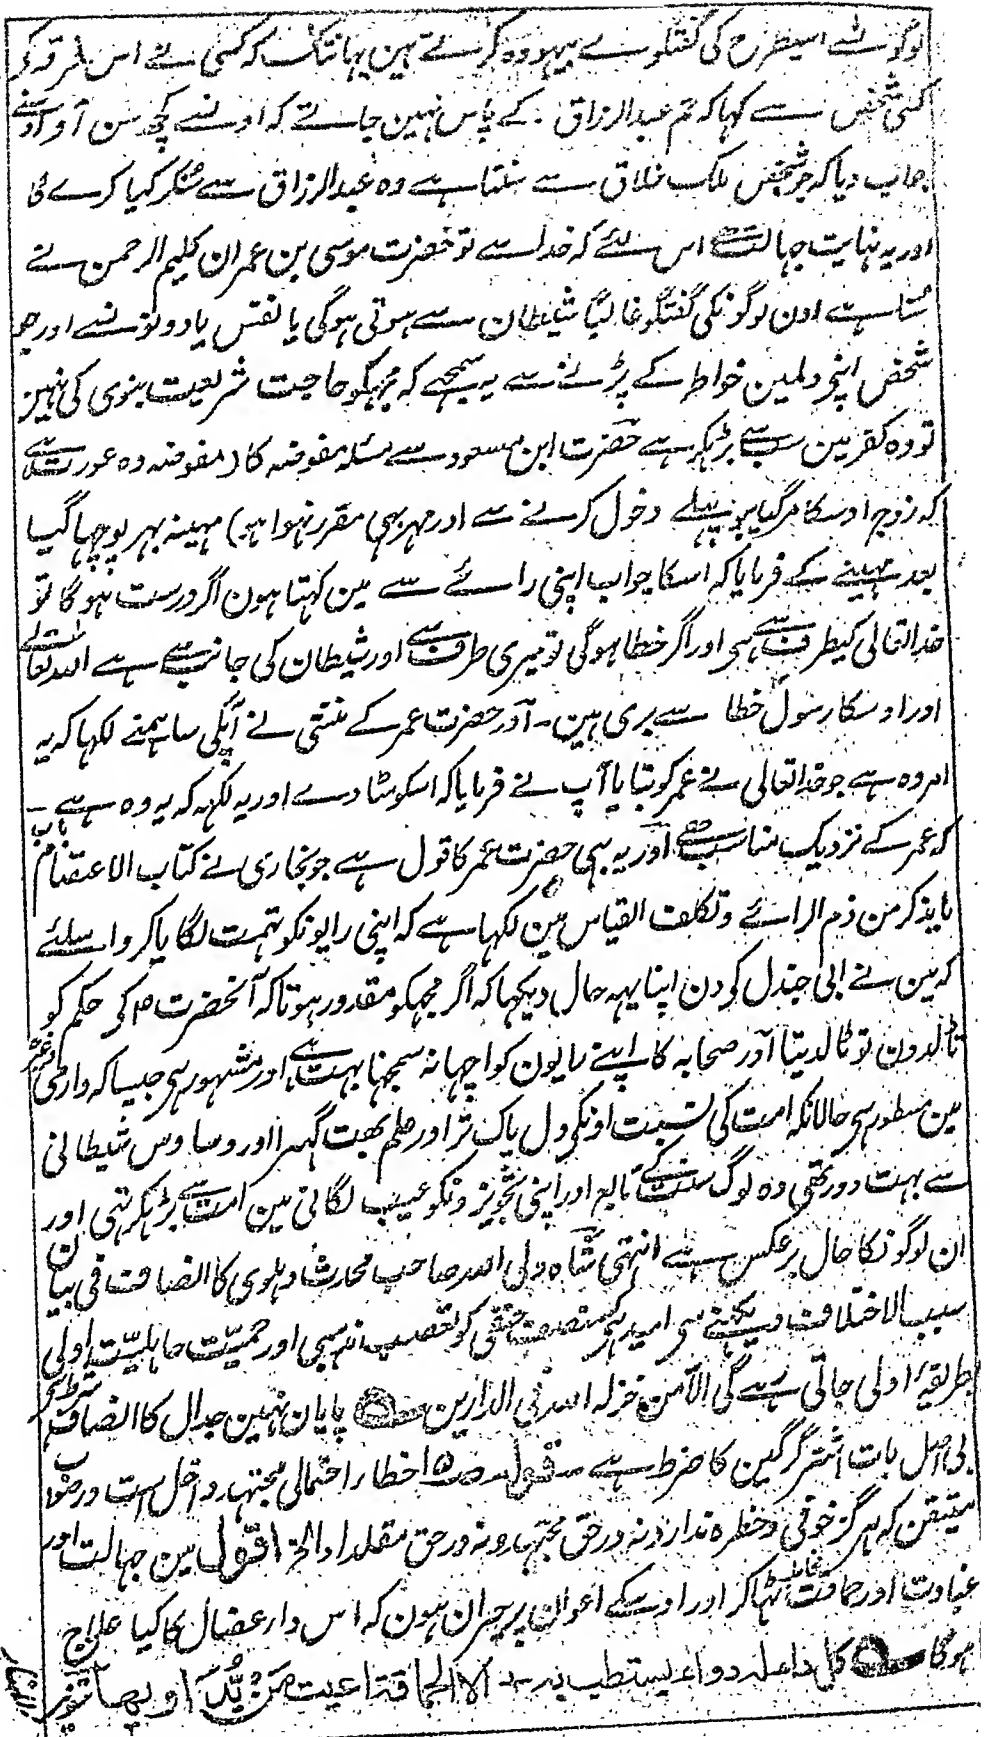 لوگونسے اسیطرح کی گفتگوے بیہودہ کرتے ہین یہانتک کہ کسی نے اس فرقہ کے
کسی شخص سے کہا کہ تم عبدالرزاق کے پاس نہین جاتے کہ اونسے کچھ سن آو اوسنے
جواب دیا کہ جو شخص ملک خلاق سے سنتا ہے وہ عبدالرزاق سے سُنکر کیا کرے گا
اور یہ نہایت جہالت ہے اس لئے کہ خدا سے تو حضرت موسی بن عمران کلیم الرحمن نے
سنا ہے اون لوگونکی گفتگو غالباً شیطان سے ہوتی ہوگی یا نفس یا دونونسے اور جو
شخص اپنے دلمین خواطر کے پڑنے سے یہ سمجھے کہ مجھکو حاجت شریعت نبوی کی نہین
تو وہ کفر مین سب سے بڑھکر ہے حضرت ابن مسعود سے مسئلہ مفوضہ کا (مفوضہ وہ عورت ہے
کہ زوج اوسکا مر گیا ہو پہلے دخول کرنے سے اور مہر بہی مقرر نہوا ہو) مہینہ بہر پوچہا گیا
بعد مہینے کے فرمایا کہ اسکا جواب اپنی رائے سے مین کہتا ہون اگر درست ہوگا تو
خدا تعالی کیطرف سے ہی اور اگر خطا ہوگی تو میری طرف سے اور شیطان کی جانب سے ہے اللہ تعالے
اور اوسکا رسول خطا سے بری ہین۔ اور حضرت عمر کے منشی نے آپکی سامہنے لکہا کہ یہ
امر وہ ہے جو خدا تعالی نے عمر کو بتایا آپ نے فرمایا کہ اسکو مٹا دے اور یہ لکھہ کہ یہ وہ ہے ۔
کہ عمر کے نزدیک مناسب ہے اور یہ بہی حضرت عمر کا قول ہے جو بخاری نے کتاب الاعتصام باب
مایذکر من ذم الرائے وتکلف القیاس مین لکہا ہے کہ اپنی رایونکو تہمت لگایا کرو اسلئے
کہ مین نے ابی جندل کو دن اپنا یہہ حال دیکہا کہ اگر مجہکو مقدور ہوتا کہ آنحضرت ؐ کی حکم کو
ٹالدون تو ٹالدیتا اور صحابہ کا اپنے رایون کو اچہا نہ سمجہنا بہت ہے اور مشہور ہی جیسا کہ دارمی وغیرہ
مین مسطور ہی حالانکہ امت کی نسبت اونکی دل پاک تر اور علم بہت گہرا اور وساوس شیطانی
سے بہت دور تھی وہ لوگ سنت کے تابع اور اپنی تجویزونکو عیب لگانی مین امت سے بڑہکر تہی اور
ان لوگونکا حال برعکس ہے انتہی شاہ ولی اللہ صاحب محدث دہلوی کا انصاف فی بیان
سبب الاختلاف دیکہنے سی امید ہی کہ متعصب حنفی کو تعصب مذہبی اور حمیّت جاہلیّت اولی
بطریقہٴ اولی جاتی رہے گی الامن خزلہ اللہ فی الدارین پایان نہین جدال کا انصاف شرط ہی
بی اصل بات اشتر گرگین کا ضرط ہے ۔ قولہ اخطار احتمالی مجتہد داخل است در صواب
متیقن کہ ہرگز خوفی وخطرہ ندارد نہ در حق مجتہد و نہ در حق مقلد او الخ اقول مین جہالت اور
غباوت اور حماقت ٹہاکر اور اوسکے اعوان پر حیران ہون کہ اس داء عضال کا کیا علاج
ہوگا کل داءلہ دواء یستطب بہ ۔ الا الحماقۃ اعیت من یُّدَاویھا